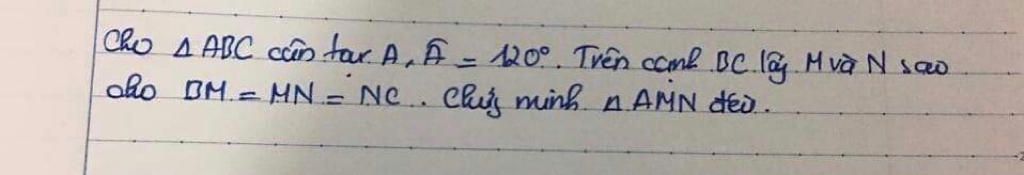 Cho Δ ABC cân tại A, Â = 120°. Trên cạnh BC lấy M và N sao
cho BM = MN = NC. Chứng minh Δ AMN đều.